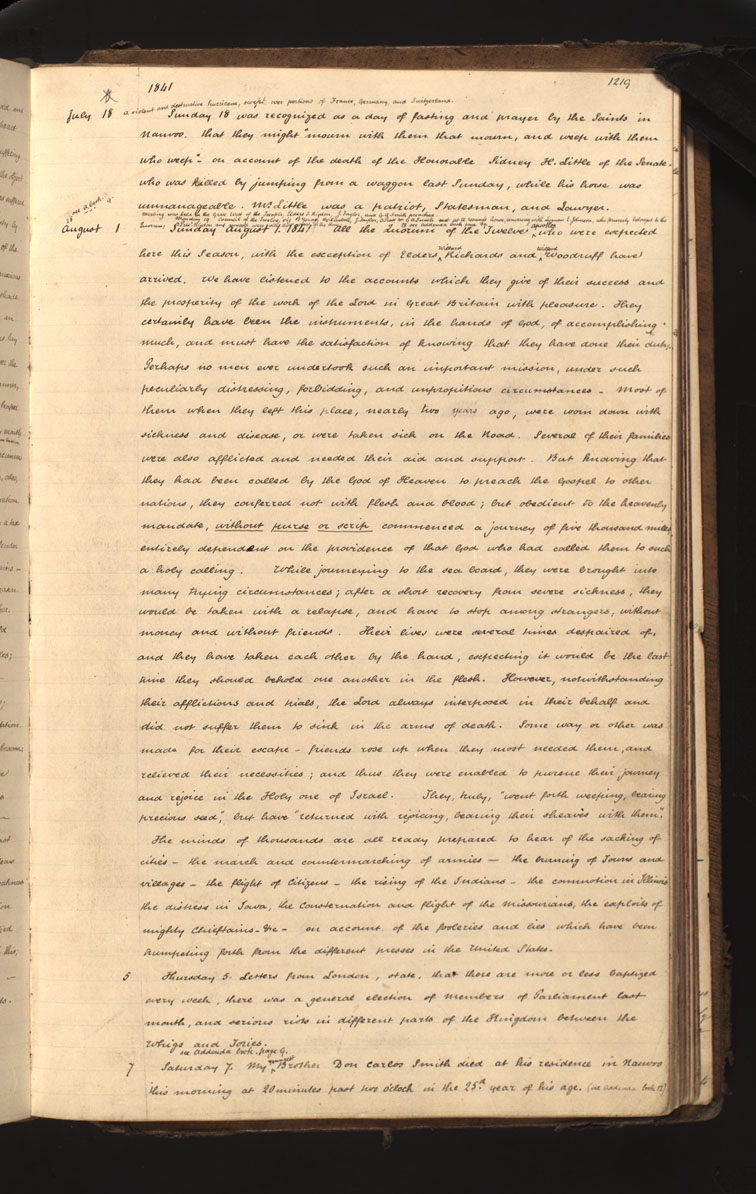 1841
1219
July 18 a violent and destructive hurricane, swept over portions of France, Germany, and Switzerland.
Sunday 18 was recognized as a day of fasting and prayer by the Saints in
Nauvoo. that they might "mourn with them that mourn, and weep with them
who weep"- on account of the death of the Honorable Sidney H. Little of the Senate-
who was killed by jumping from a waggon last Sunday, while his horse was
unmanageable. Mr. Little was a patriot, Statesman, and Lawyer.
August 1 Sunday August 1. 1841 All the Quorum of the Twelve apostles who were expected
here this Season, with the exception of Elders Willard Richards and Wilford Woodruff have
arrived. We have listened to the accounts which they give of their success and
the prosperity of the work of the Lord in Great Britain with pleasure. They
certainly have been the instruments, in the hands of God, of accomplishing-
much, and must have the satisfaction of knowing that they have done their duty.
Perhaps no men ever undertook such an important mission, under such
peculiarly distressing, forbidding, and unpropitious circumstances - Most of
them when they left this place, nearly two years ago, were worn down with
sickness and disease, or were taken sick on the Road. Several of their families
were also afflicted and needed their aid and support. But knowing that
they had been called by the God of Heaven to preach the Gospel to other
nations, they conferred not with flesh and blood; but obedient to the heavenly
mandate, without purse or scrip commenced a journey of five thousand miles
entirely dependent on the providence of that God who had called them to such
a holy calling. While journeying to the sea board, they were brought into
many trying circumstances; after a short recovery from severe sickness, they
would be taken with a relapse, and have to stop among strangers, without
money and without friends. Their lives were several times despaired of,
and they have taken each other by the hand, expecting it would be the last
time they should behold one another in the flesh. However, notwithstanding
their afflictions and trials, the Lord always interposed in their behalf and
did not suffer them to sink in the arms of death. Some way or other was
made for their escape - friends rose up when they most needed them, and
relieved their necessities; and thus they were enabled to pursue their journey
and rejoice in the Holy one of Israel. They, truly, "went forth weeping, bearing
precious seed", but have "returned with rejoicing, bearing their sheaves with them".
The minds of thousands are all ready prepared to hear of the sacking of
cities - the march and countermarching of armies - the burning of Towns and
villages - the flight of Citizens - the rising of the Indians - the commotion in Illinois
the distress in Iowa, the Consternation and flight of the Missourians, the exploits of
mighty Chieftains - &c - on account of the fooleries and lies which have been
trumpeting forth from the different presses in the United States.
5 Thursday 5. Letters from London, state, that there are more or less baptized
every week, there was a general election of members of Parliament last
month, and serious riots in different parts of the Kingdom between the
Whigs and Tories.
see addenda book. page 9.
7 Saturday 7. My youngest Brother Don Carlos Smith died at his residence in Nauvoo
this morning at 20 minutes past two o'clock in the 25th year of his age. (see addenda book 12)